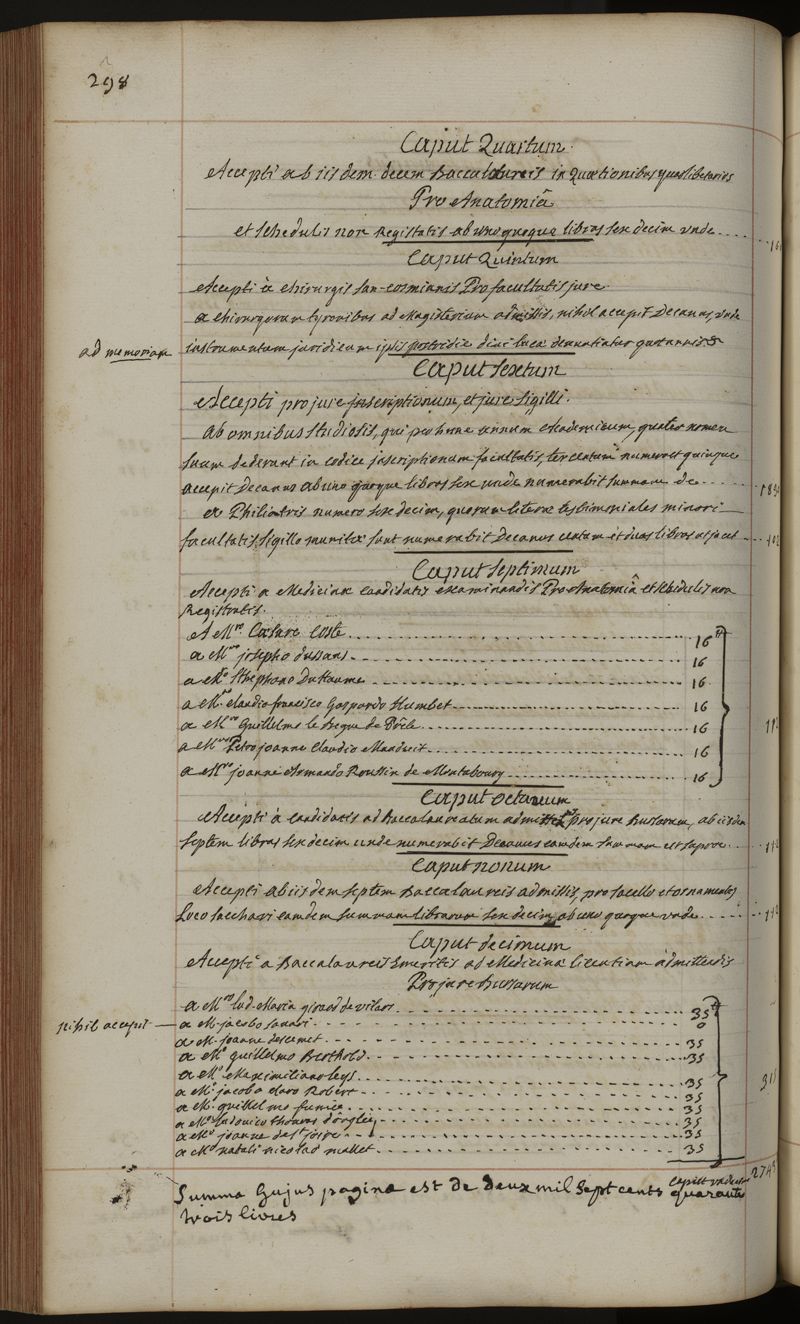 298
Caput Quartum
Accepti ab iisdem decem Baccalaureis in Quœstionibus quodlibetariis
Pro Anatomiâ
et schedulis non Registratis ab unoquoque libras sex decim unde
Caput Quintum
Accepti à chirurgis san-cosmianis Pro facultatis jure
a chirurgorum tyronibus ad Magisterium admissis, nihil accepit Decanus, unde
ad memoriam
instrumentum juridicum ipsis postridie divi lucæ denuntiatur quotannis
Caput Sextum
Accepti pro jure inscriptionum, et jure sigilli.
ab omnibus studiosis, qui per hunc annum Academicum, quater nomen
suum dederunt in codice inscriptionum facultatis, tercentum numero et quinque
accepit Decanus ab uno quoque libras sex unde numerabit summam de
a Philiatris numero sex decim, quorum literæ testimoniales minori
facultatis sigillo munitæ sunt numerabit Decanus centum et duas libras
Caput Septimum
Accepti a Medicinæ candidatis examinandis Pro Anatomiâ et schedulis non
Registratis.
A Mro Cæsare Coste 16 #
a Mro josepho dussans 16
a Mro Stephano Duhaume 16
a Mro claudio francisco Gaspardo Humbet 16
a Mro Guillelmo le Begue de Prêle 16
a Mro Petro joanne Claudio Mauduit 16
a Mro joanne Armando Roussin de Montabourg 16
112
Caput octavum
Accepti à candidatis ad Baccalaureatum admissis pro jure Bursarum, ab iisdem
septem libras sex decim unde numerabit Decanus eamdem summam ut supra 112
Caput nonum
Accepti ab iisdem septem Baccalaureis admissis, pro sacello et ornamentis
Loco sacchari eamdem summam librarum sex decim, ab uno quoque unde 112
Caput decimum
Accepti a Baccalaureis Emeritis ad Medicinæ licentiam admittendis
Pro jure Bursarum
a Mro lud. Maria girard de villars 35 #
nihil accepit
a M. jacobo savari 0
a M. joanne descemet 35
a Mo guillelmo Berthold 35
a Mo Maximiliano leys 35
a Mo jacobo claro Robert 35
a Mo guillelmo fumée 35
a Mo ludovico thoma 35
a Mo joanne de St 35
a Mo natali nicolao mallet 35
Summa hujus paginæ est de deux mil sept cents quarante 2743
trois livres